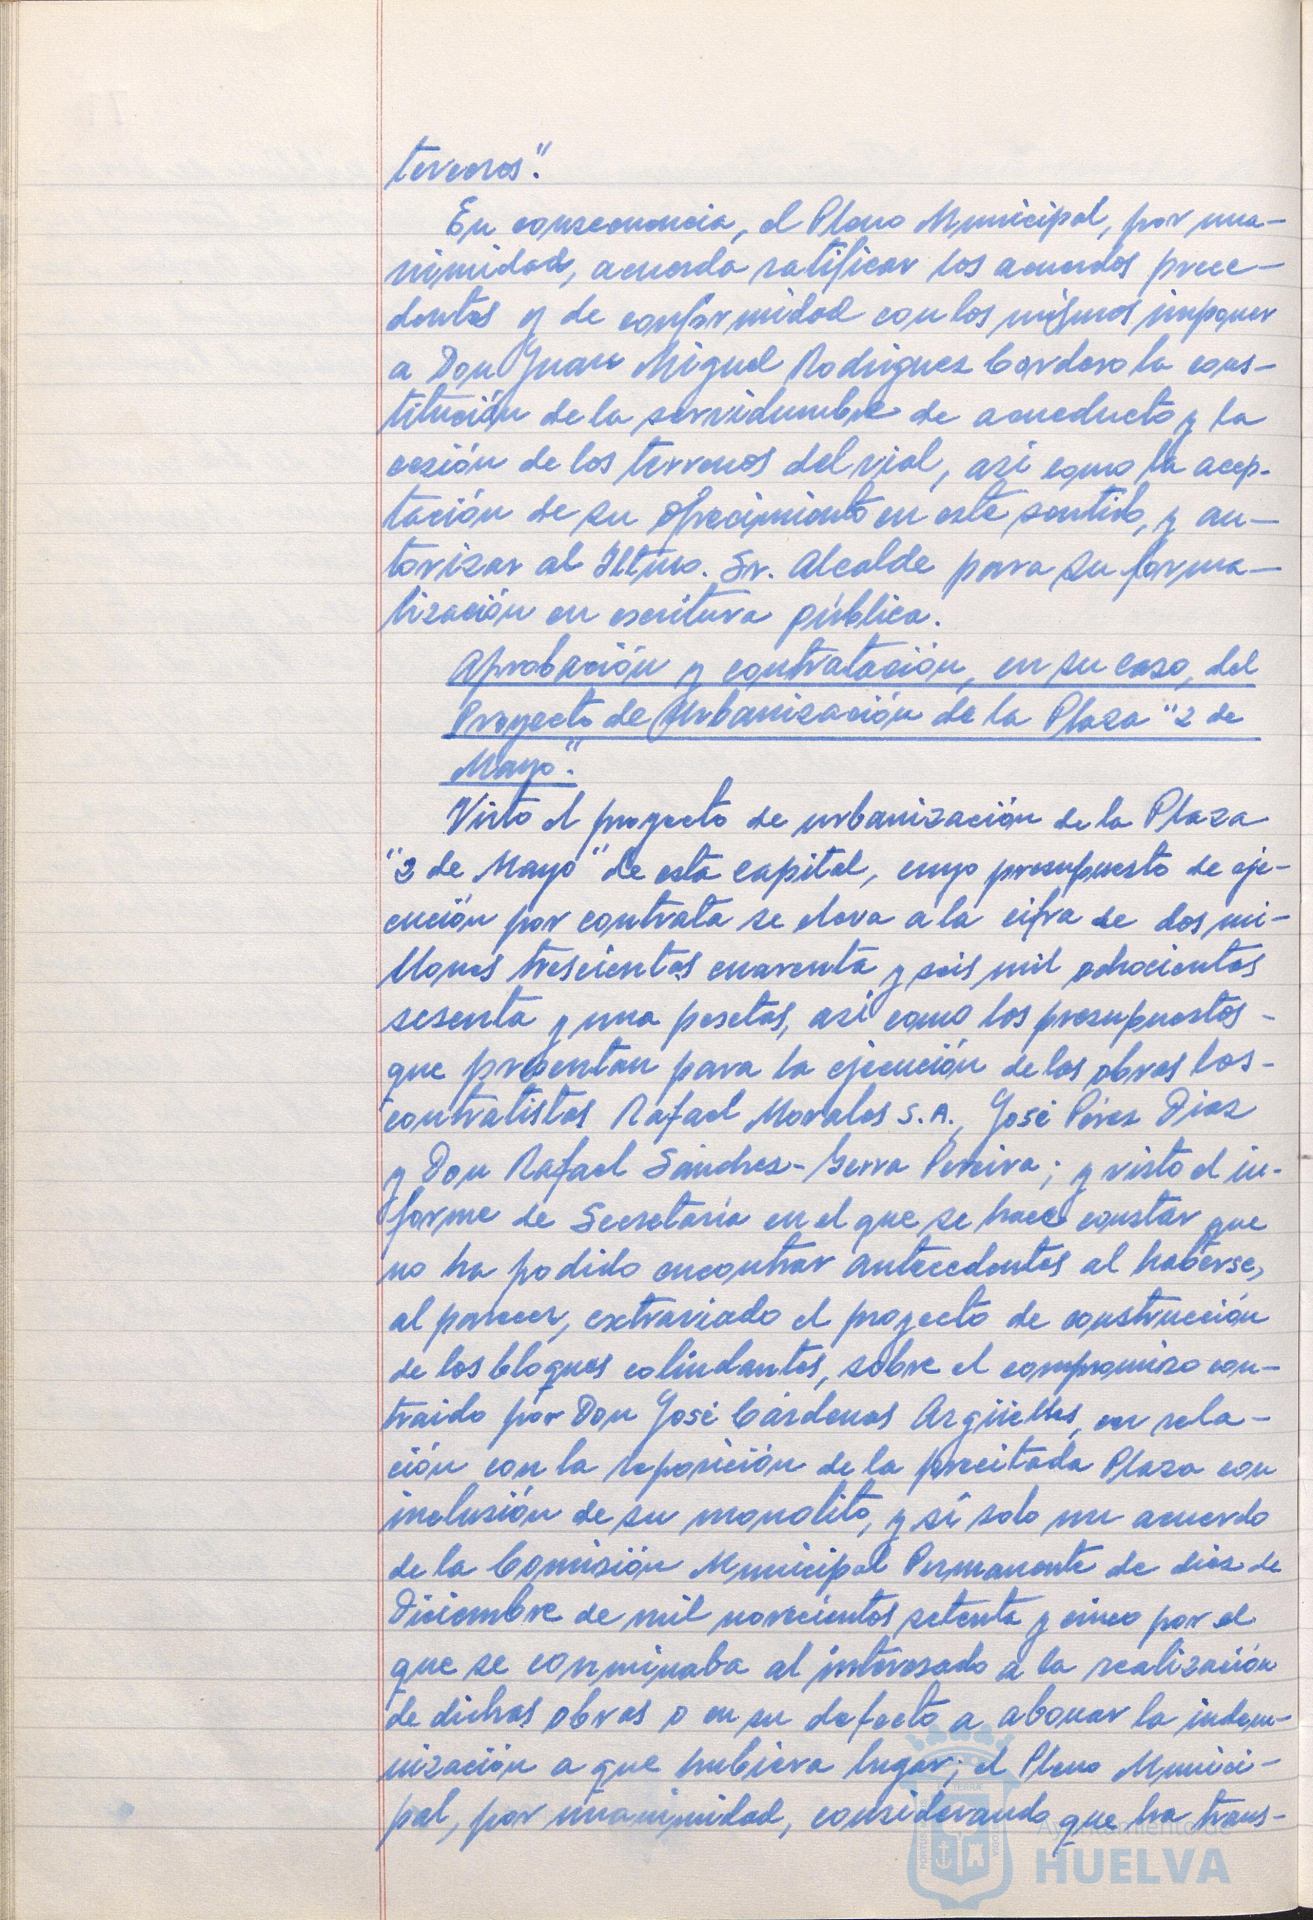 terceros".
En consecuencia, el Pleno Municipal, por una-
nimidad, acuerda ratificar los acuerdos prece-
dentes y de conformidad con los mismos imponer
a Don Juan Miguel Rodriguez Cordero la cons-
titución de la servidumbre de acueducto y la
cesión de los terrenos del vial, asi como la acep-
tación de su ofrecimiento en este sentido, y au-
torizar al Iltmo. Sr. Alcalde para su forma-
lización en escritura pública.
Aprobación y contratación, en su caso, del
Proyecto de Urbanización de la Plaza "2 de
Mayo".
Visto el proyecto de urbanización de la Plaza
"2 de Mayo" de esta capital, cuyo presupuesto de eje-
cución por contrata se eleva a la cifra de dos mi-
llones trescientas cuarenta y seis mil ochocientas
sesenta y una pesetas, asi como los presupuestos-
que presentan para la ejecución de las obras los-
contratistas Rafael Morales S.A., José Pérez Diaz
y Don Rafael Sánchez-Serra Pereira; y visto el in-
forme de Secretaría en el que se hace constar que
no ha podido encontrar antecedentes al haberse,
al parecer, extraviado el proyecto de construcción
de los bloques colindantes, sobre el compromiso con-
traido por Don José Cárdenas Argüelles, en rela-
ción con la reposición de la precitada Plaza con
inclusión de su monolito, y sí solo un acuerdo
de la Comisión Municipal Permanente de diez de
Diciembre de mil novecientos setenta y cinco por el
que se conminaba al interesado a la realización
de dichas obras o en su defecto a abonar la indem-
nización a que hubiera lugar; el Pleno Munici-
pal, por unanimidad, considerando que ha trans-
Ayuntamiento de
HUELVA